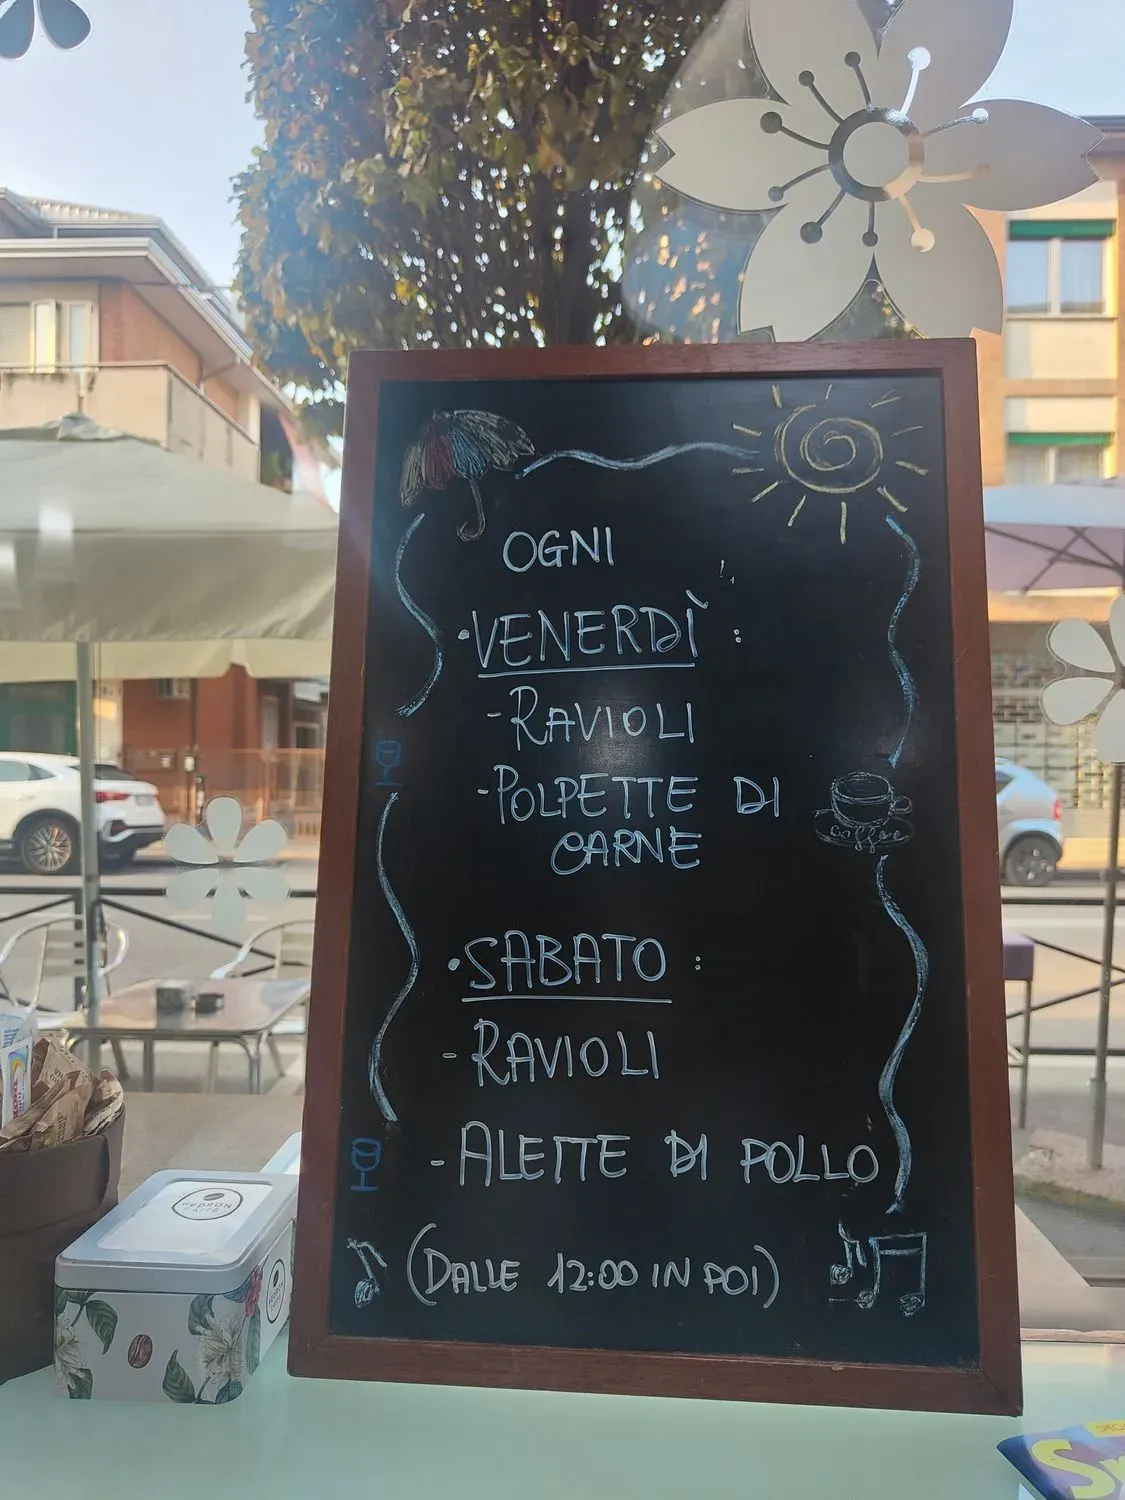 OGNI
•VENERDÌ :
-RAVIOLI
-POLPETTE DI
CARNE
caffee
•SABATO :
-RAVIOLI
-ALETTE DI POLLO
(DALLE 12:00 IN POI)
PEDRON
CAFFÈ